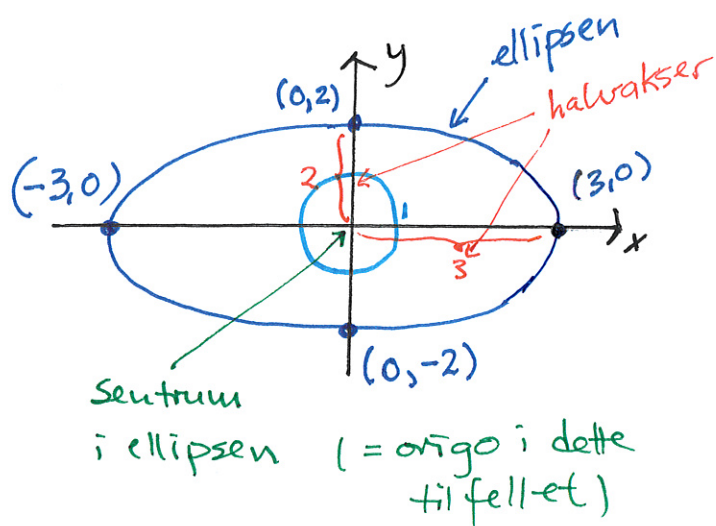 y
ellipsen
(0,2)
halvakser
(-3,0)
2
1
(3,0)
x
3
(0,-2)
sentrum
i ellipsen (= origo i dette
tilfellet)